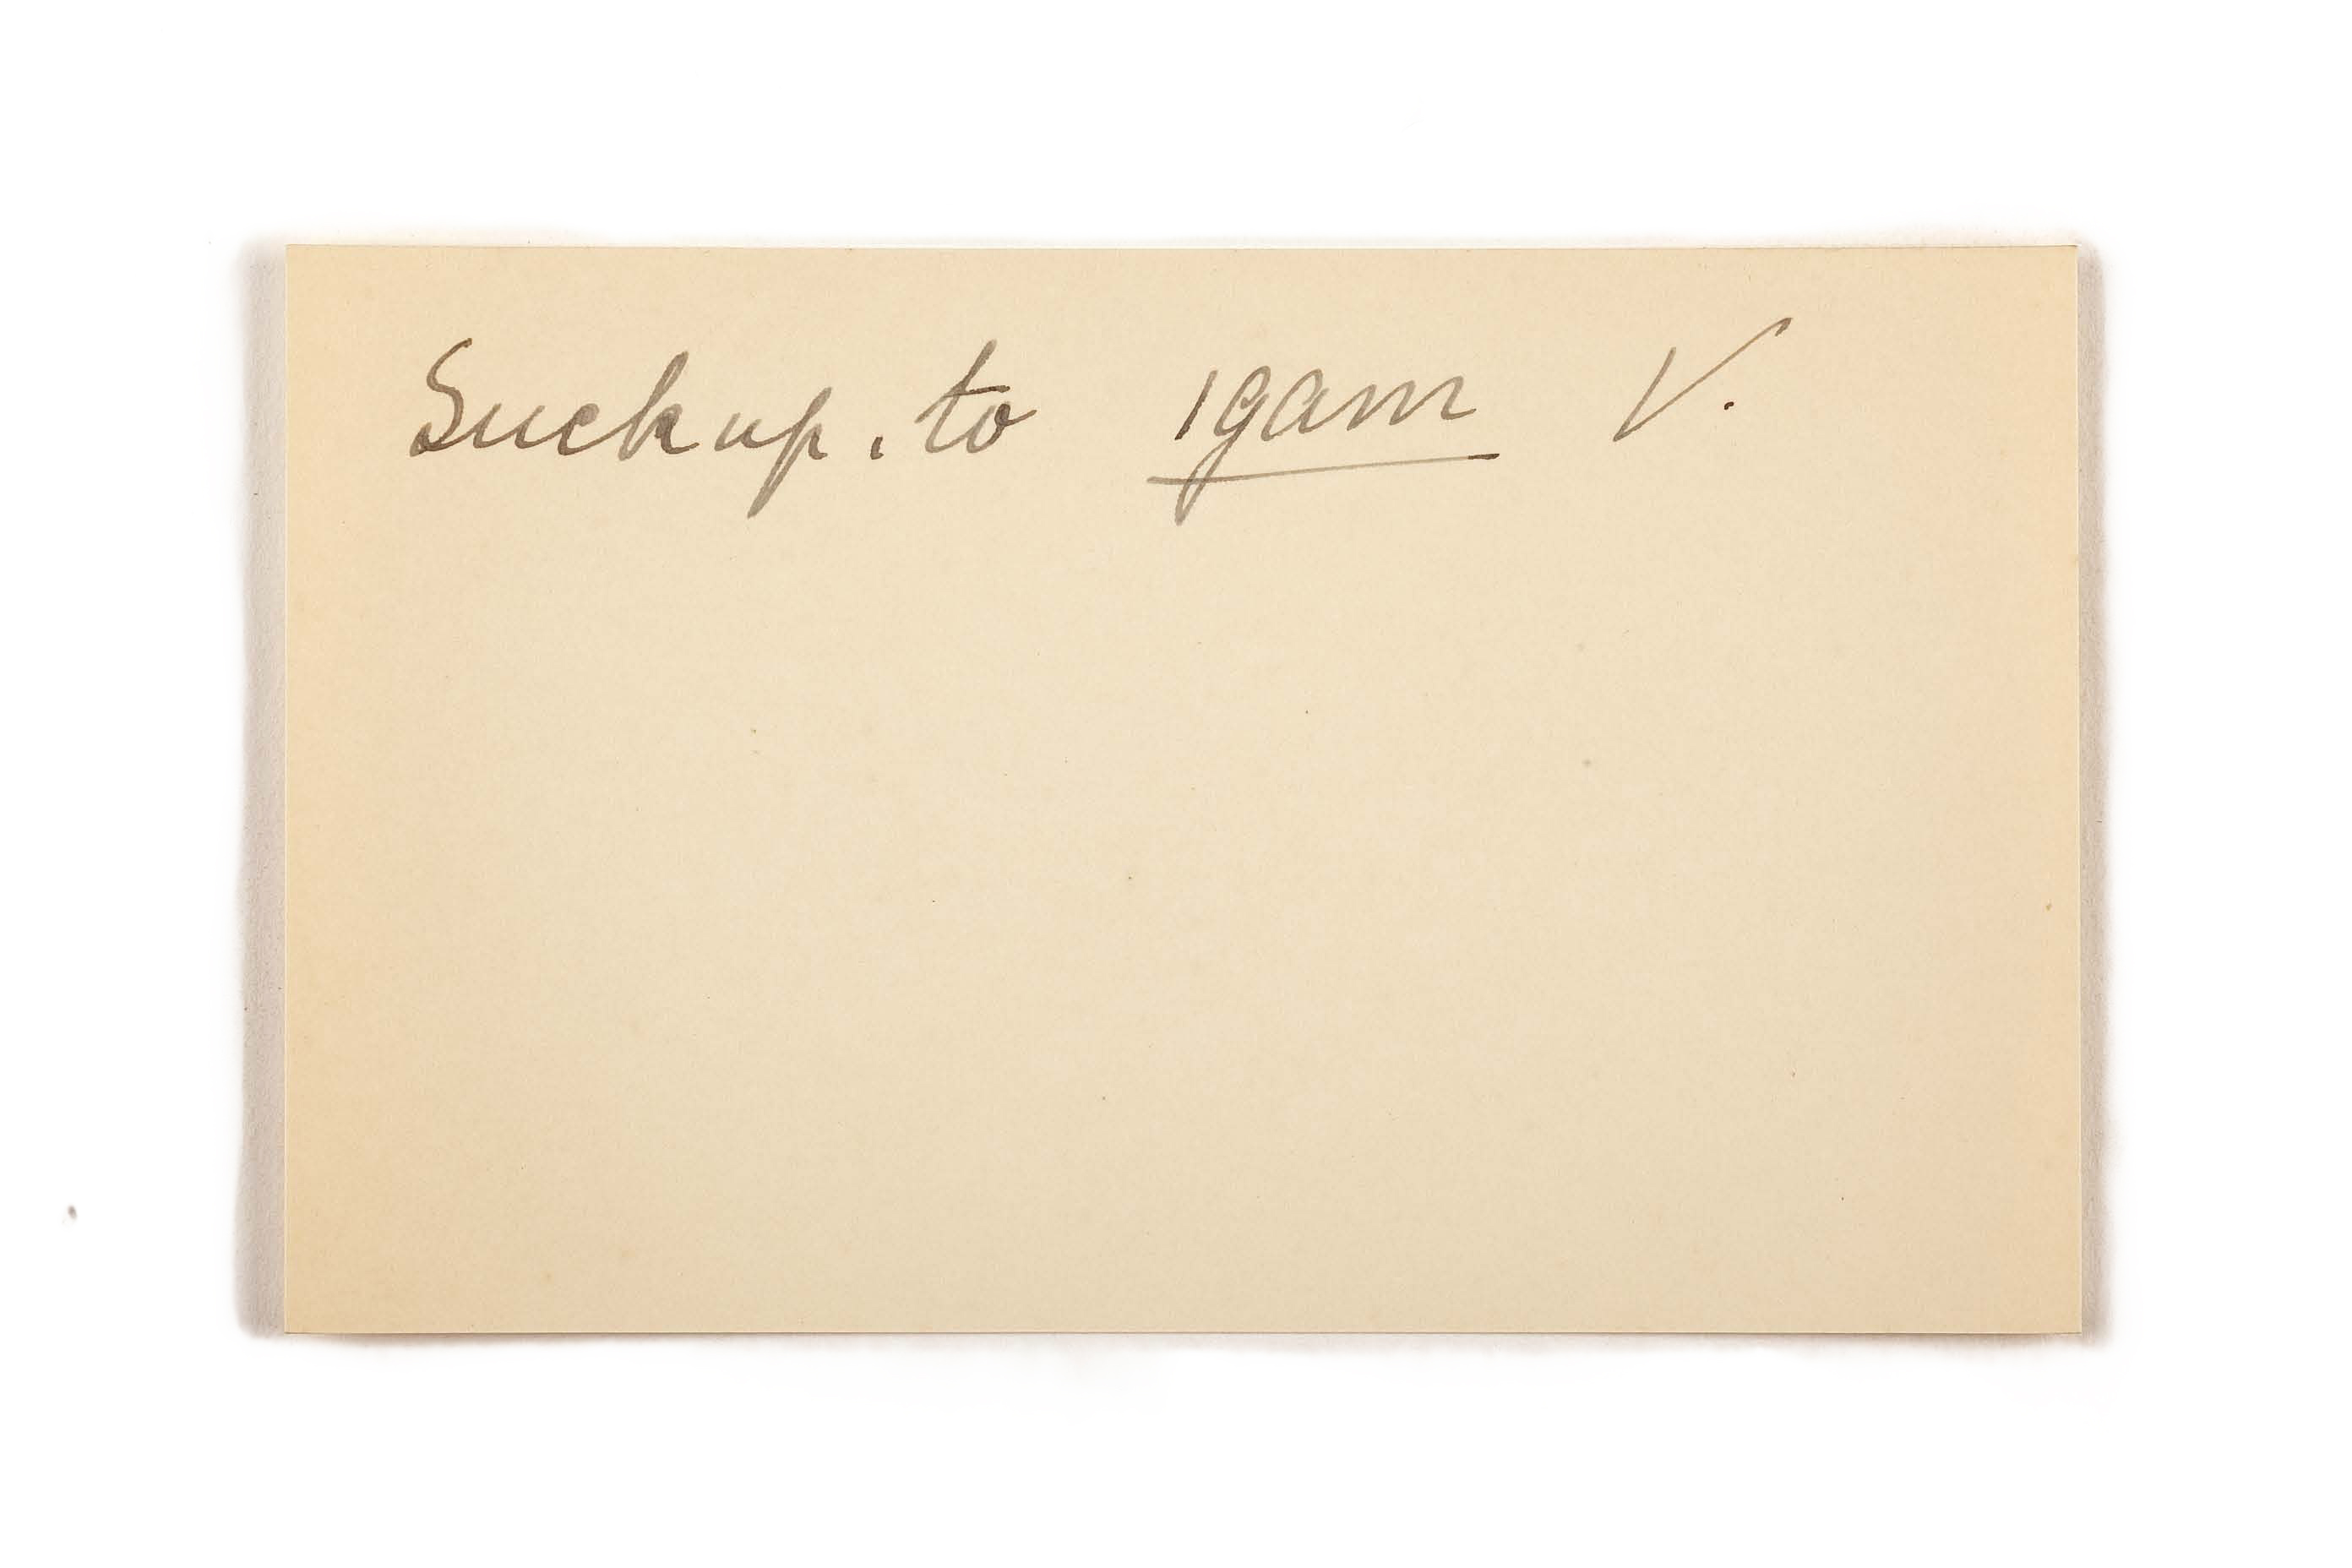 Suck up. to igam V.